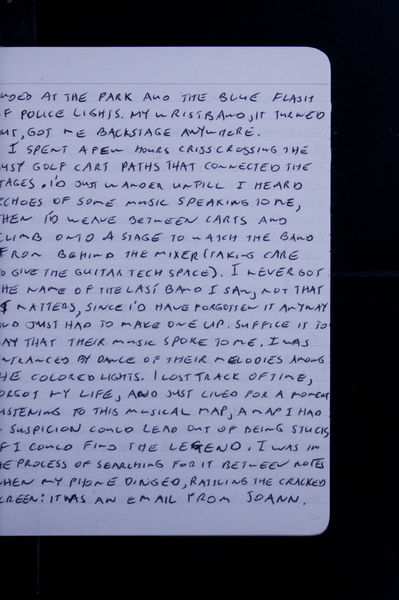 AT THE PARK AND THE BLUE FLASH
OF POLICE LIGHTS. MY WRISTBAND, IT TURNED
OUT, GOT ME BACKSTAGE ANYWHERE.
I SPENT A FEW HOURS CRISSCROSSING THE
DUSTY GOLF CART PATHS THAT CONNECTED THE
STAGES. I'D JUST WANDER UNTILL I HEARD
ECHOES OF SOME MUSIC SPEAKING TO ME,
THEN I'D WEAVE BETWEEN CARTS AND
CLIMB ONTO A STAGE TO WATCH THE BAND
FROM BEHIND THE MIXER (TAKING CARE
TO GIVE THE GUITAR TECH SPACE). I NEVER GOT
THE NAME OF THE LAST BAND I SAW, NOT THAT
IT MATTERS, SINCE I'D HAVE FORGOTTEN IT ANYWAY
AND JUST HAD TO MAKE ONE UP. SUFFICE IT TO
SAY THAT THEIR MUSIC SPOKE TO ME. I WAS
ENTRANCED BY DANCE OF THEIR MELODIES AMONG
THE COLORED LIGHTS. I LOST TRACK OF TIME,
FORGOT MY LIFE, AND JUST LIVED FOR A MOMENT
LISTENING TO THIS MUSICAL MAP, A MAP I HAD
A SUSPICION COULD LEAD OUT OF BEING STUCK,
IF I COULD FIND THE LEGEND. I WAS IN
THE PROCESS OF SEARCHING FOR IT BETWEEN NOTES
WHEN MY PHONE DINGED, RATTLING THE CRACKED
SCREEN: IT WAS AN EMAIL FROM JOANN.